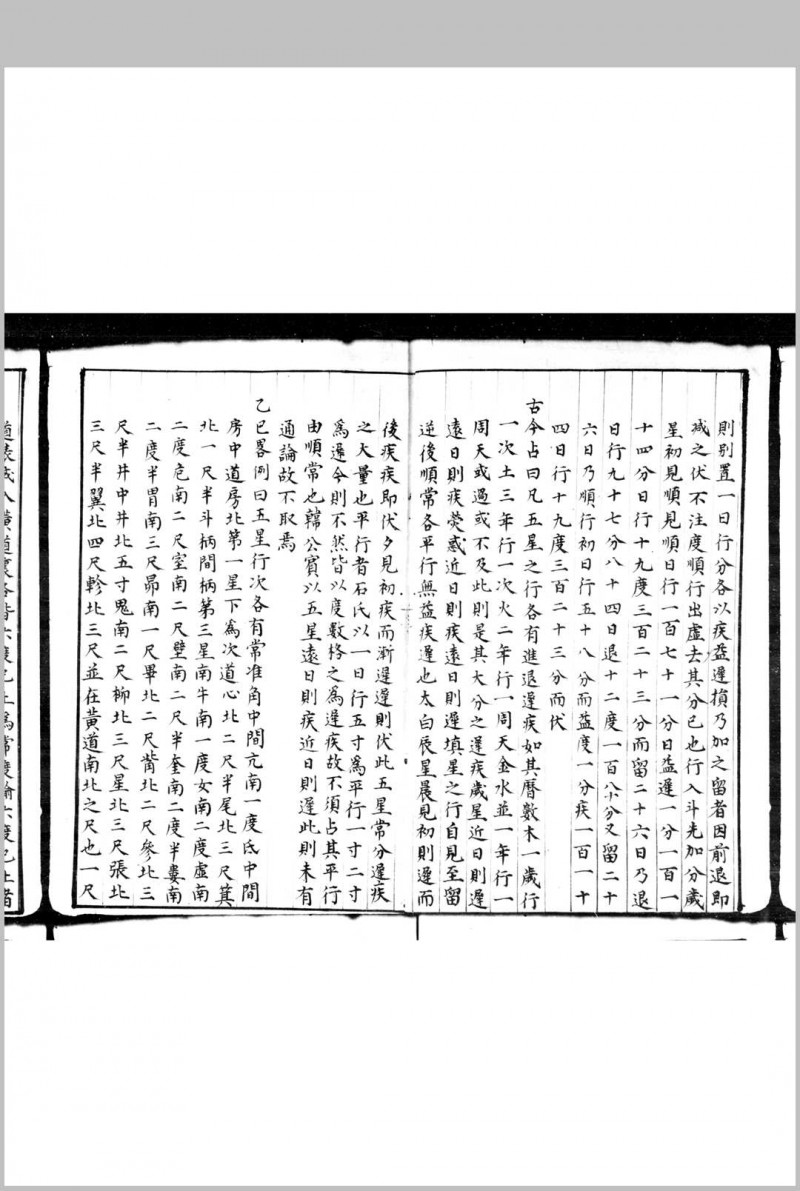 則別置一日行分各以疾益遲損乃加之留者因前退即
減之伏不注度順行出虛去其分已也行入斗先加分歲
星初見順見順日行一百七十一分日益遲一分百一
十四分日行十九度三百二十三分而留二十六日乃退
日行九十七分八十四日退十二度一百八十分又留二十
六日乃順行初日行五十八分而益度一分疾一百一十
四日行十九度三百二十三分而伏
古今占曰凡五星之行各有進退遲疾如其曆數木一歲行
一次土三年行一次火二年行一周天金水並一年行一
周天或過或不及此則是其大分之遲疾歲星近日則遲
遠日則疾熒惑近日則疾遠日則遲填星之行自見至留
逆後順常各平行無益疾遲也太白辰星晨見初則遲而
後疾疾即伏夕見初疾而漸遲遲則伏此五星常分遲疾
之大量也平行者石氏以一日行五寸為平行一寸二寸
為遲今則不然皆以度數格之為遲疾故不須占其平行
由順常也韓公賓以五星遠日則疾近日則遲此則未有
通論故不取焉
乙巳畧例曰五星行次各有常准角中間亢南一度氐中間
房中道房北第一星下為次道心北二尺半尾北三尺箕
北一尺半斗柄間柄第三星南牛南一度女南二度虛南
二度危南二尺室南二尺壁南二尺半奎南二度半婁南
二度半胃南三尺昴南一尺畢北二尺觜北二尺參北三
尺半井中井北五寸鬼南二尺柳北三尺星北三尺張北
三尺半翼北四尺軫北三尺並在黃道南北之尺也一尺